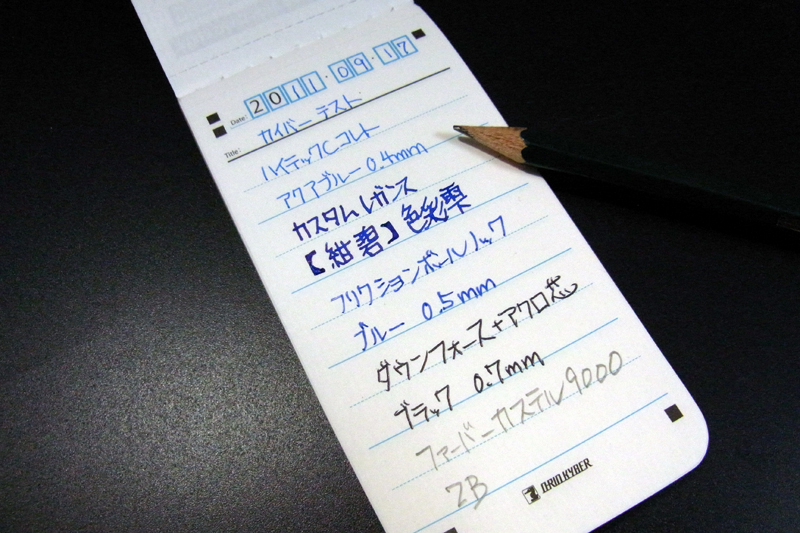 Date: 2011.09.17
Title: カイバー テスト
ハイテックCコレト
アクアブルー 0.4mm
カスタムレガンス
【紺碧】色彩雫
フリクションボールノック
ブルー 0.5mm
ダウンフォース+アクロ芯
ブラック 0.7mm
ファーバーカステル9000
2B